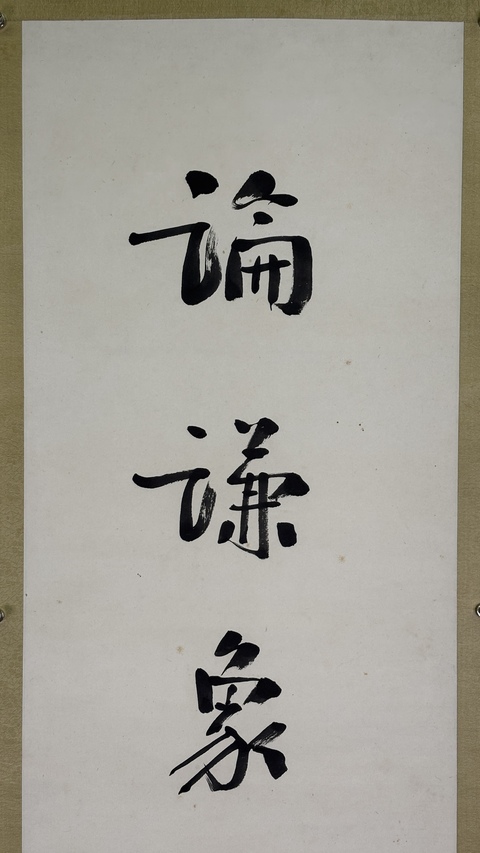 論謙象